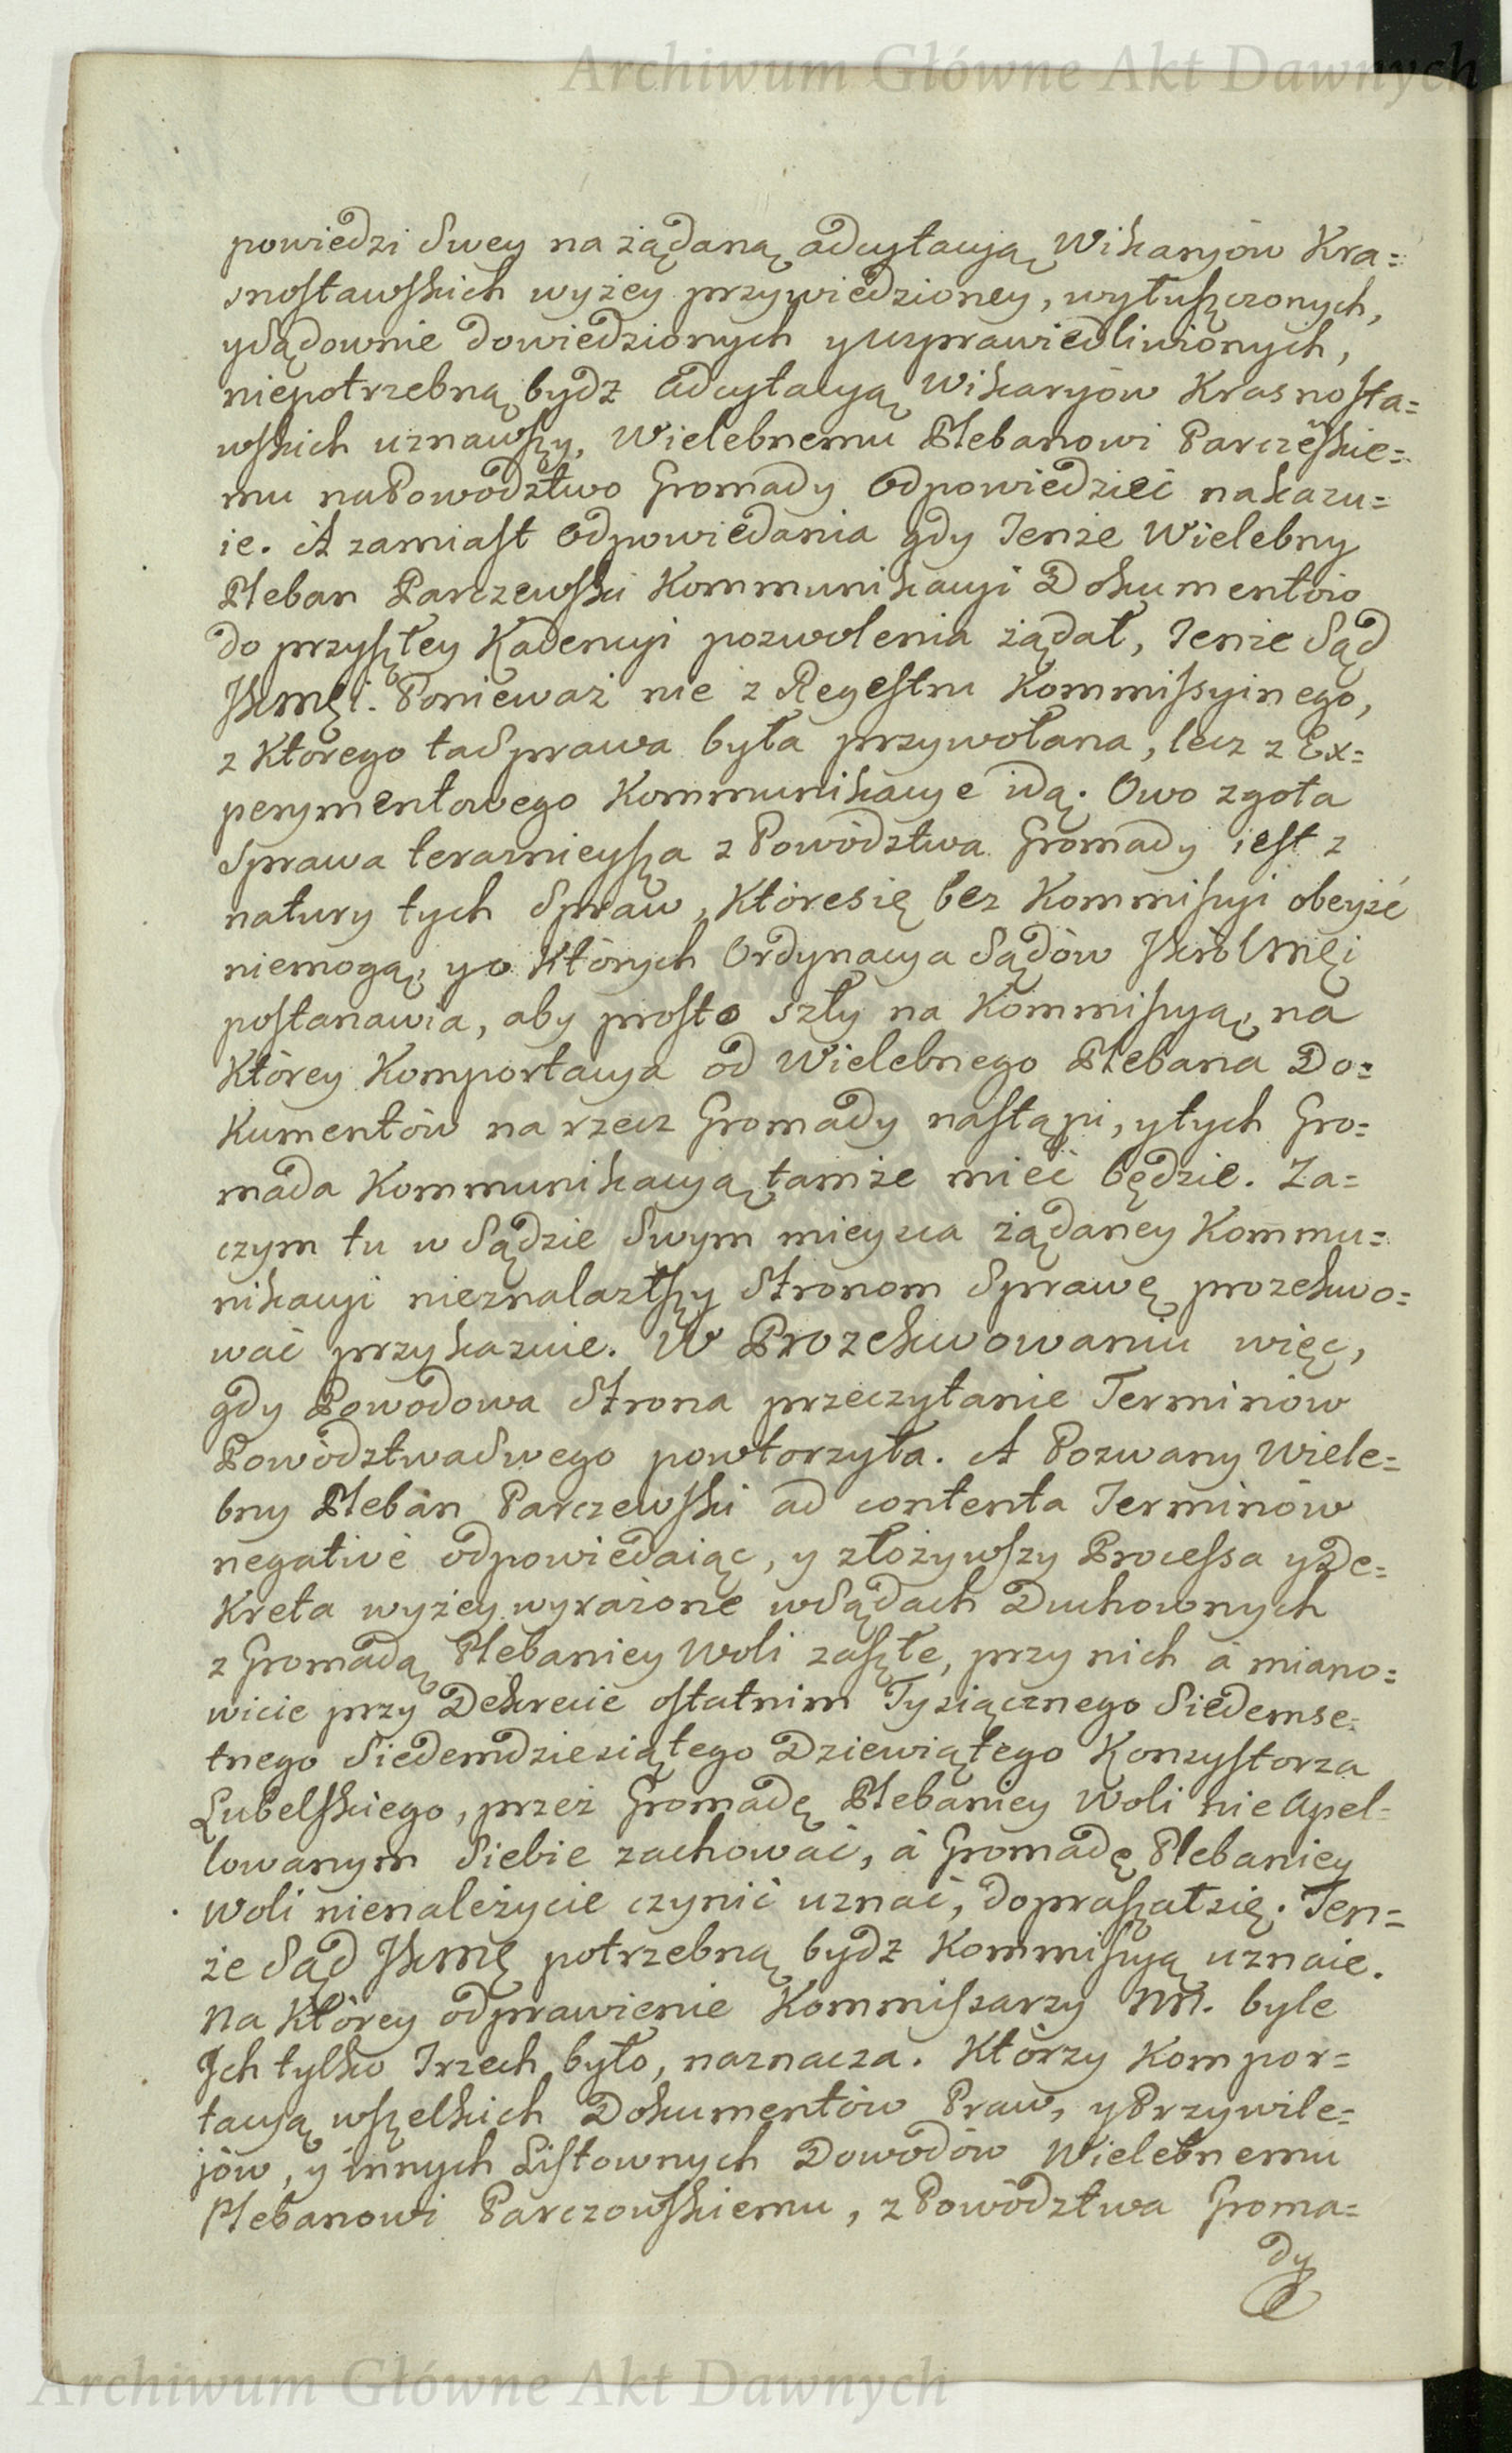 Archiwum Główne Akt Dawnych
powiedzi Swey na żądaną adcytacyą Wikaryów Kra=
snostawskich wyżey przywiedzioney, wytuszczonych,
y Sądownie dowiedzionych y usprawiedliwionych,
niepotrzebną bydz adcytacyą Wikaryów Krasnosta=
wskich uznawszy, Wielebnemu Plebanowi Parczewskie=
mu na Powodztwo Gromady Odpowiedzieć nakazu=
ie. A zamiast Odpowiedania gdy Tenże Wielebny
Pleban Parczewski Kommunikacyi Dokumentów
do przyszłey Kadencyi pozwolenia żądał, Tenże Sąd
JKmći. Ponieważ nie z Regestru Kommissyinego,
z Którego ta Sprawa była przywołana, lecz z Ex=
perymentowego Kommunikacye idą. Owo zgoła
Sprawa teraznieysza z Powództwa Gromady iest z
natury tych Spraw, Które się bez Kommissyi obeyżć
niemogą, y o Których Ordynacya Sądów JKról Mći
postanawia, aby prosto szły na Kommissyą, na
Którey Komportacya od Wielebnego Plebana Do=
Kumentów na rzecz Gromady nastąpi, y tych Gro=
mada Kommunikacyą tamże mieć będzie. Za=
czym tu w Sądzie Swym mieysca żądaney Kommu=
nikacyi nieznalazłszy Stronom Sprawę prozekwo=
wać przykazuie. W Prozekwowaniu więc,
gdy Powodowa Strona przeczytanie Terminów
Powództwa Swego powtorzyła. A Pozwany Wiele=
bny Pleban Parczewski ad contenta Terminów
negativè odpowiedaiąc, y złożywszy Processa y De=
Kreta wyżey wyrażone w Sądach Duchownych
z Gromadą Plebaniey Woli zaszłe, przy nich á miano=
wicie przy Dekrecie ostatnim Tysiącznego Siedemse=
tnego Siedemdziesiątego Dziewiątego Konsystorza
Lubelskiego, przez Gromadę Plebaniey Woli nie Apel=
lowanym Siebie zachować, á Gromadę Plebaniey
Woli nienależycie czynić uznać, dopraszał się. Ten=
że Sąd JKmć potrzebną bydz Kommissyą uznaie.
Na Którey odprawienie Kommissarzy NN. byle
Ich tylko Trzech było, naznacza. Którzy Kompor=
tacyą wszelkich Dokumentów Praw, y Przywile=
jów, y innych Listownych Dowodów Wielebnemu
Plebanowi Parczowskiemu, z Powództwa Groma=
dy
Archiwum Główne Akt Dawnych